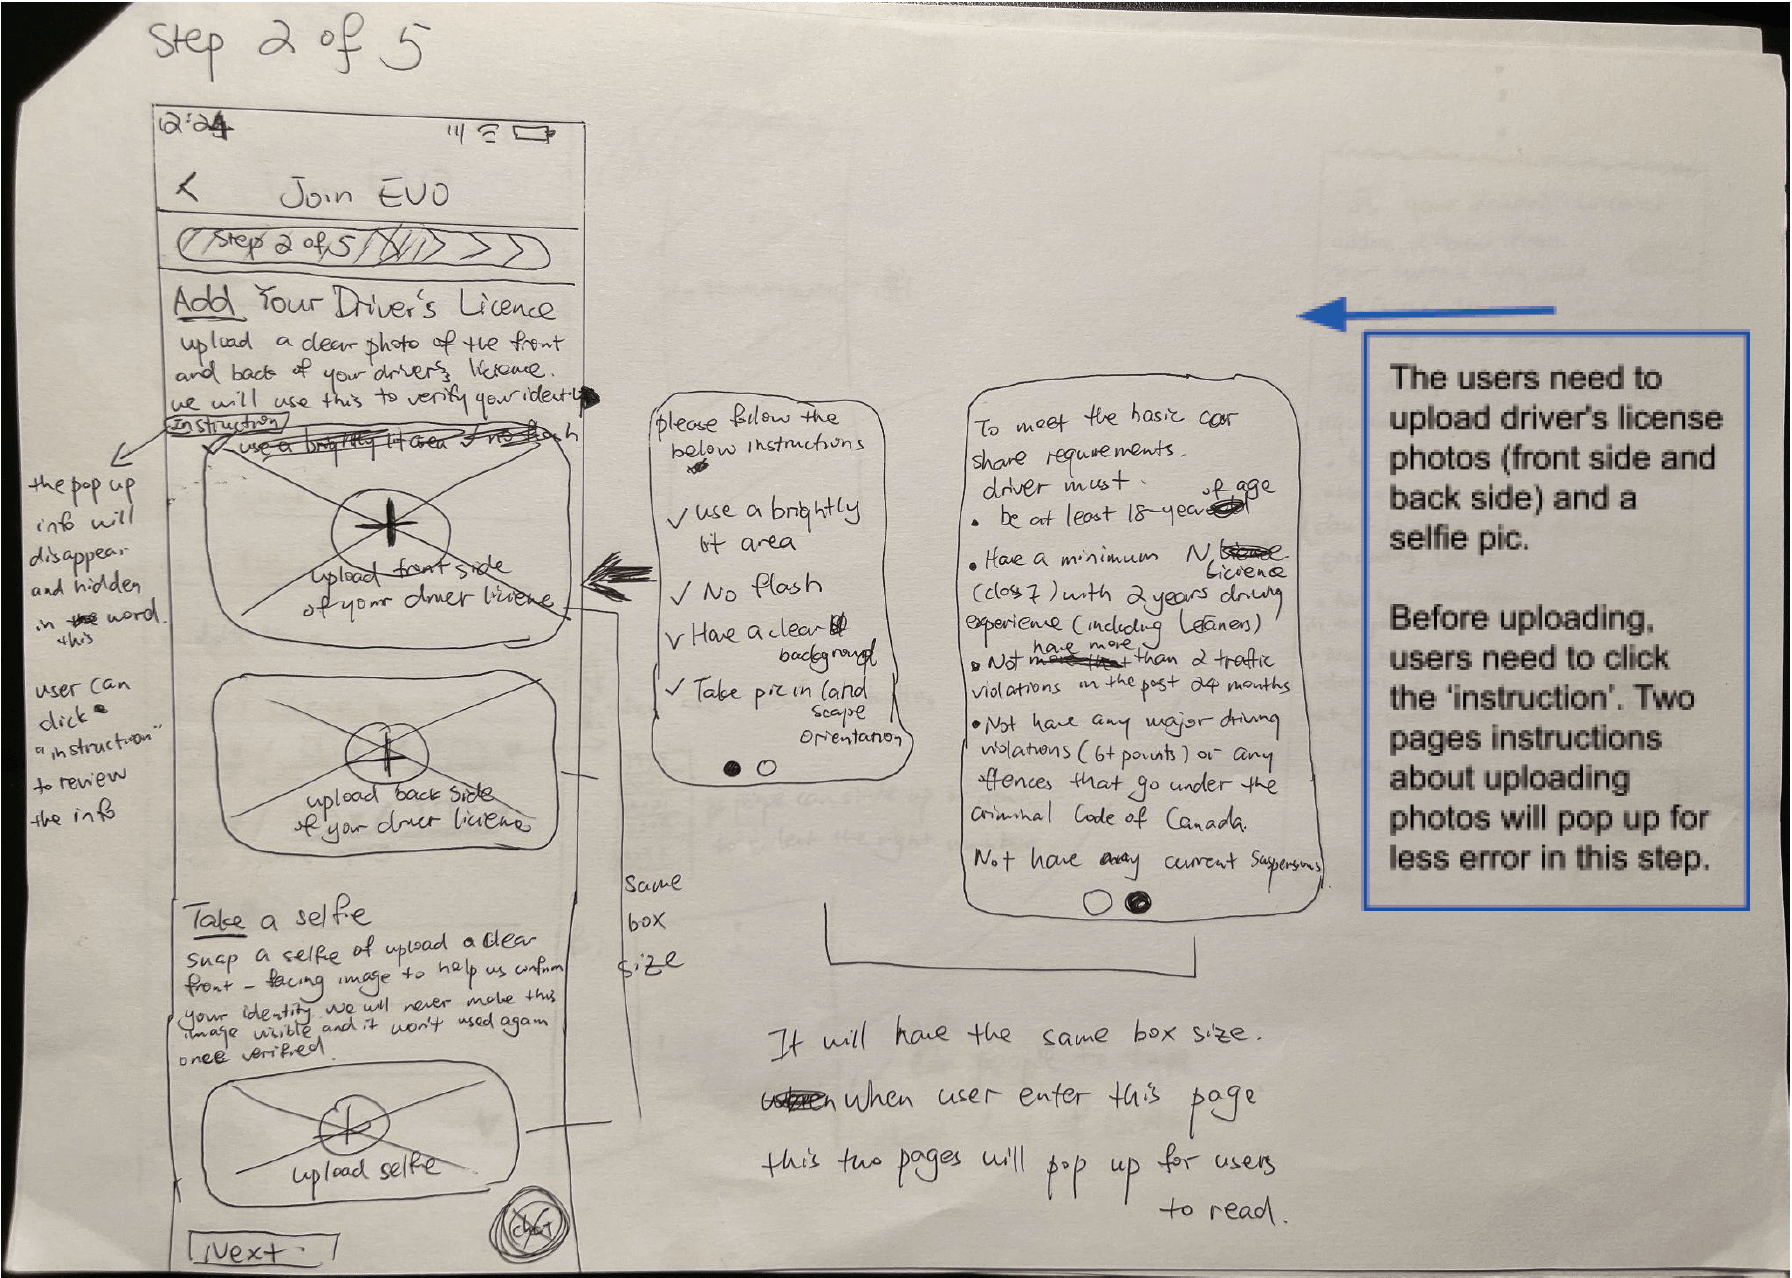 Step 2 of 5
12:24
Join EVO
Step 2 of 5
Add Your Driver's Licence
upload a clear photo of the front
and back of your driver's licience.
we will use this to verify your identi
Instruction
✓ use a brightly lit area ✓ no flash
upload front side
of your driver licience
upload back side
of your driver licience
Take a selfie
snap a selfie of upload a clear
front - facing image to help us confirm
your identity. We will never make this
image visible and it won't used again
once verified.
upload selfie
Next
chat
the pop up
info will
disappear
and hidden
in word.
this
user can
click
"instruction"
to review
the info
same
box
size
please follow the
below instructions
✓ use a brightly
lit area
✓ No flash
✓ Have a clear
background
✓ Take pic in land
scape
orientation
To meet the basic car
share requirements.
driver must.
of age
• be at least 18-year
• Have a minimum N
Licience
(class 7) with 2 years driving
experience (including Leaners)
have more
• Not than 2 traffic
violations in the past 24 months
• Not have any major driving
violations (6+ points) or any
offences that go under the
Criminal Code of Canada.
Not have any current suspensions
It will have the same box size.
when user enter this page
this two pages will pop up for users
to read.
The users need to
upload driver's license
photos (front side and
back side) and a
selfie pic.
Before uploading,
users need to click
the 'instruction'. Two
pages instructions
about uploading
photos will pop up for
less error in this step.